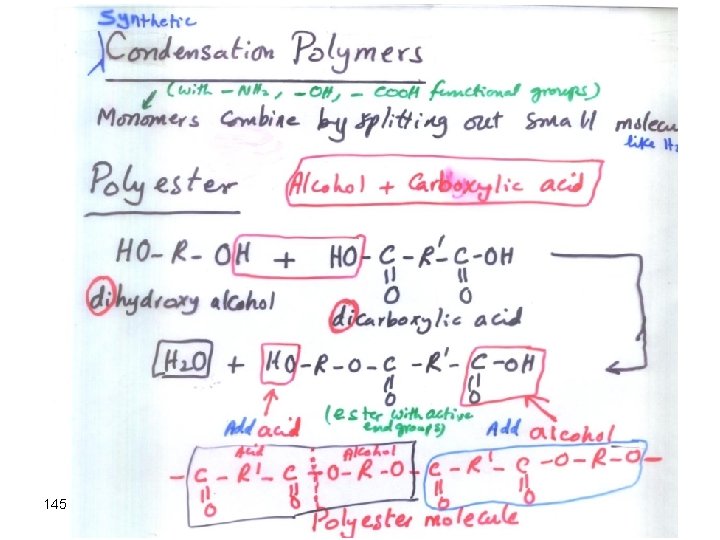 Synthetic
Condensation Polymers
(with -NH₂, -OH, - COOH functional groups)
Monomers combine by splitting out small molecu
like H₂
Polyester Alcohol + Carboxylic acid
HO-R-OH + HO-C-R'-C-OH
O O
dihydroxy alcohol dicarboxylic acid
H2O + HO-R-O-C-R'-C-OH
O O
Add acid (ester with active end groups) Add alcohol
Acid Alcohol
-C-R'-C-O-R-O-C-R'-C-O-R-O-
O O O O
145 Polyester molecule